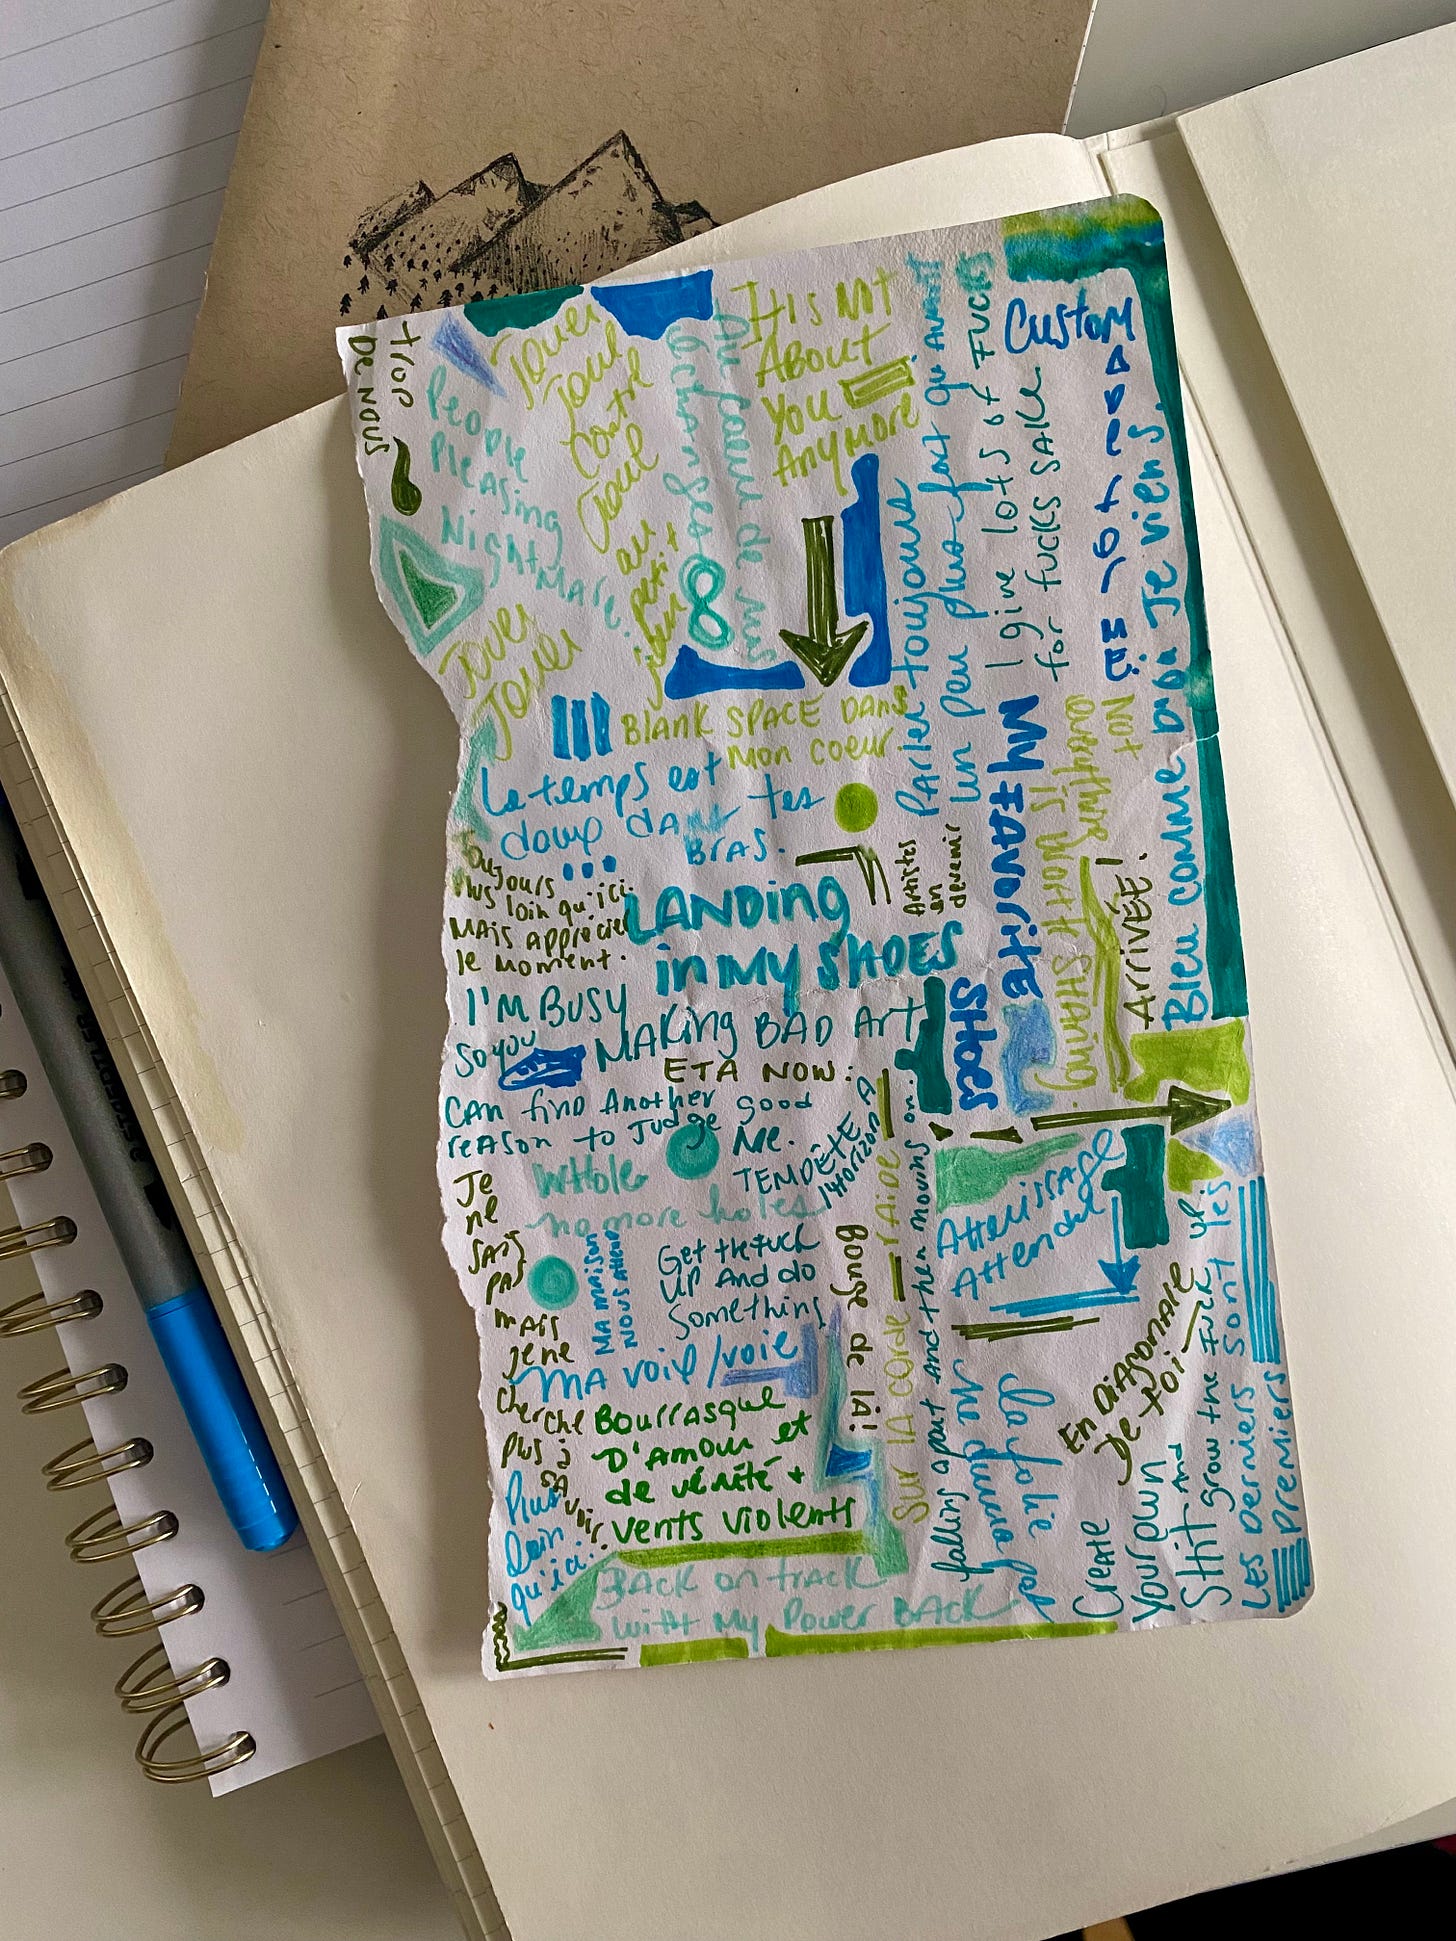 trop
De nous
People
Pleasing
Nightmare.
Jouer
Jouer
Jouer
Tout
contre
Tout
au
petit
Au coeur de nus
échanges
It is not
About
you
Anymore
Parler toujours
un peu plus fort qu'avant
I give lots of fucks
for fucks sake
Custom
BLANK SPACE DANS
Mon coeur.
Le temps est
doux dans tes
BRAS.
Toujours
Plus loin qu'ici.
MAIS apprécier
le moment.
LANDING
in My SHOES
Artistes
en
devenir
MY FAVORITE
SHOES
Not
everything
is Worth SHARING.
ARRIVÉE!
Bleu comme DiJA Je viens.
I'M BUSY
MAKING BAD Art
so you
ETA NOW:
CAN find Another good
reason to Judge Me.
WHole
no more holes
TEMPÊTE A
l'Horizon
Je
ne
SAIS
PAS
MAIS
je ne
cherche
plus à
SAVOIR
MA MAISON
NOUS Attend
Get the fuck
UP AND do
Something
MA voix/voie
Bouge de là!
Sur LA CORDE — RAIDE —
falling apart and then moving on...
Atterissage
Attendu
BOURRASQUE
D'AMOUR et
de vérité +
vents violents
Plus
Loin
qu'ici..
BACK on track
with My Power BACK
La folie
Me gunna pas
En DIAGONALE
De toi
Create
Your own
Shit AND grow the fuck up
LES DERNIERS Sont les
premiers